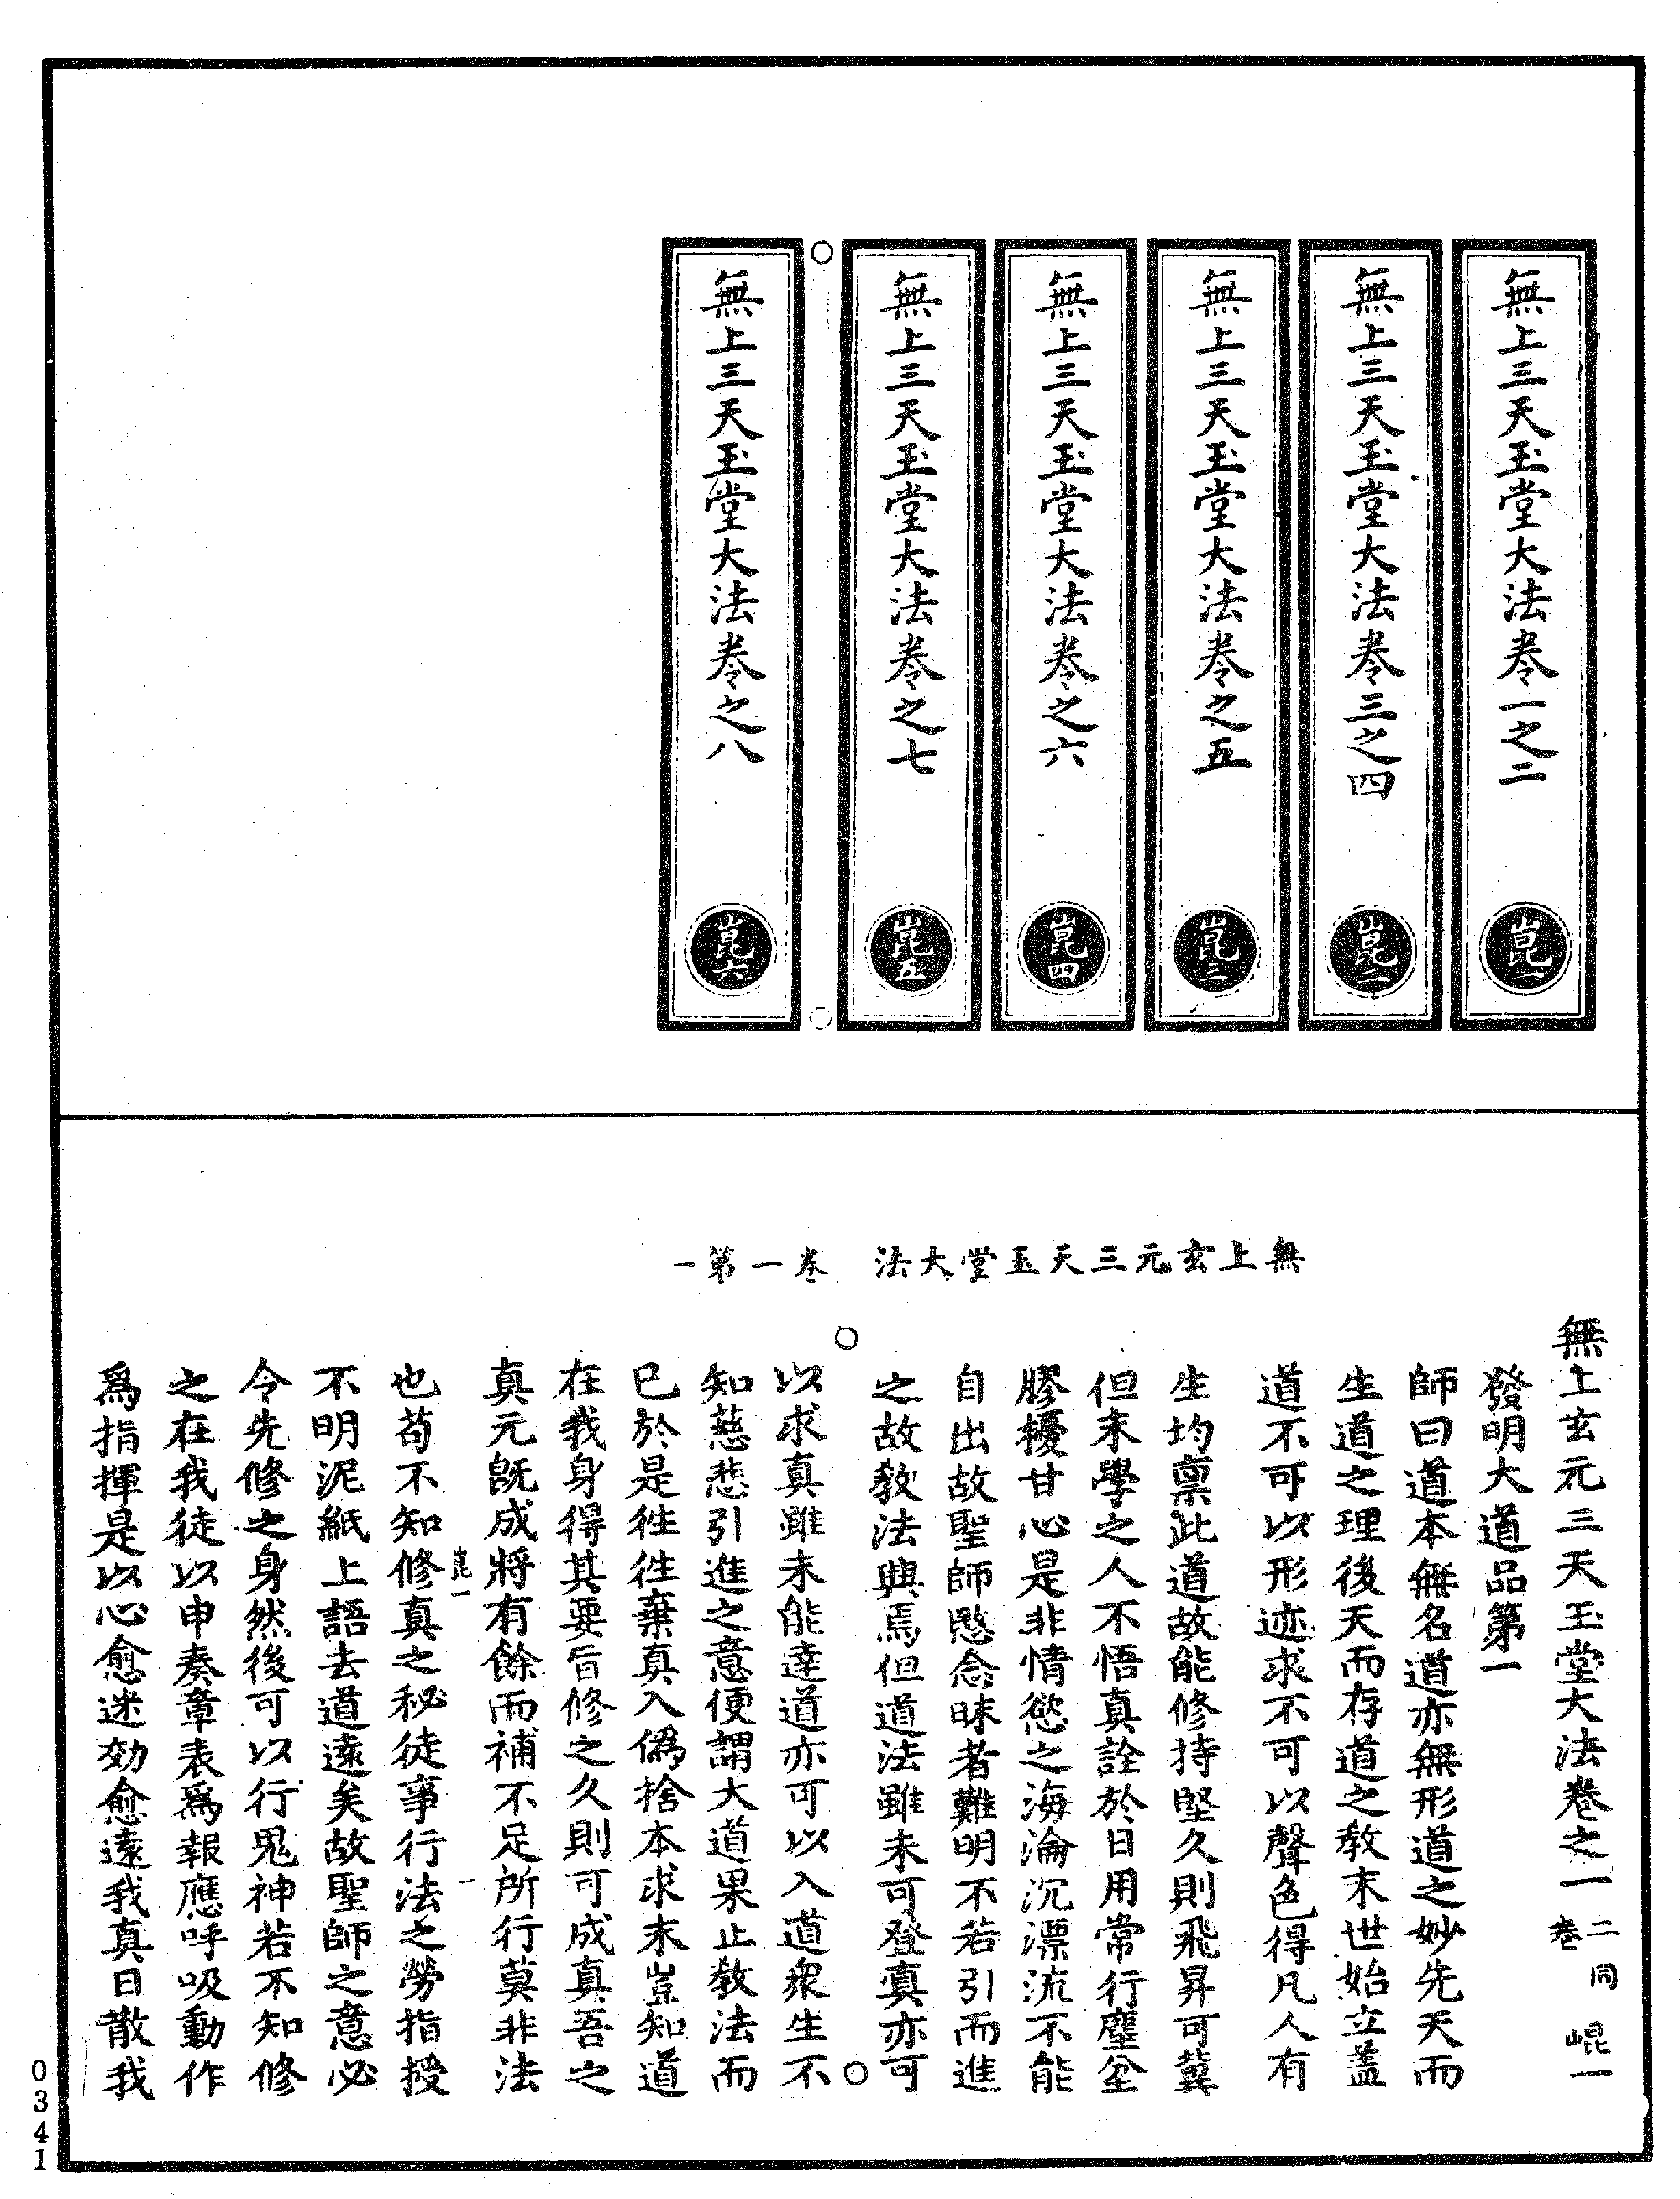 無上三天玉堂大法卷一之二
崑一
無上三天玉堂大法卷三之四
崑二
無上三天玉堂大法卷之五
崑三
無上三天玉堂大法卷之六
崑四
無上三天玉堂大法卷之七
崑五
無上三天玉堂大法卷之八
崑六
無上玄元三天玉堂大法 卷一第一
無上玄元三天玉堂大法卷之一 二同卷 崐一
發明大道品第一
師曰道本無名道亦無形道之妙先天而
生道之理後天而存道之教末世始立蓋
道不可以形迹求不可以聲色得凡人有
生均禀此道故能修持堅久則飛昇可冀
但末學之人不悟真詮於日用常行塵坌
膠擾甘心是非情慾之海淪沉漂流不能
自出故聖師愍念昧者難明不若引而進
之故教法興焉但道法雖未可登真亦可
以求真雖未能達道亦可以入道衆生不
知慈悲引進之意便謂大道果止教法而
已於是徃徃棄真入僞捨本求末豈知道
在我身得其要旨修之久則可成真吾之
真元旣成將有餘而補不足所行莫非法
崑一
也苟不知修真之秘徒事行法之勞指授
不明泥紙上語去道遠矣故聖師之意必
令先修之身然後可以行鬼神若不知修
之在我徒以申奏章表爲報應呼吸動作
爲指揮是以心愈迷効愈遠我真日散我
0341